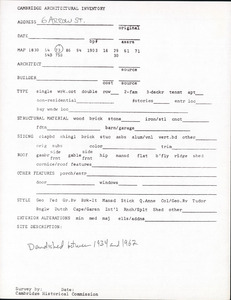 CAMBRIDGE ARCHITECTURAL INVENTORY
ADDRESS 6 Arrow St.
original
DATE
bp# assrs
MAP 1830 54 73 86 94 1903 16 39 61 71
ARCHITECT
source
BUILDER
cost source
TYPE single wrk.cot double row 2-fam 3-deckr tenmt apt
non-residential #stories entr inc
bay wnds loc
STRUCTURAL MATERIAL wood brick stone iron/stl cnct
fdtn barn/garage
SIDING clapbd shingl brick stuc asbs alum/vnl vert.bd other
trim color
side side
ROOF gable gable hip mansd flat b'fly ridge shed
frnt frnt
cornice/roof features
OTHER FEATURES porch/entr
door windows
STYLE Geo Fed Gr.Rv Brk-It Mansd Stick Q.Anne Col/Geo.Rv Tudor
Bngle Dutch Cape/Garsn Int'l Rnch/Splt Shed other
EXTERIOR ALTERATIONS min mod maj ells/addns
SITE DESCRIPTION:
Demolished between 1934 and 1962
Survey by: Date:
Cambridge Historical Commission